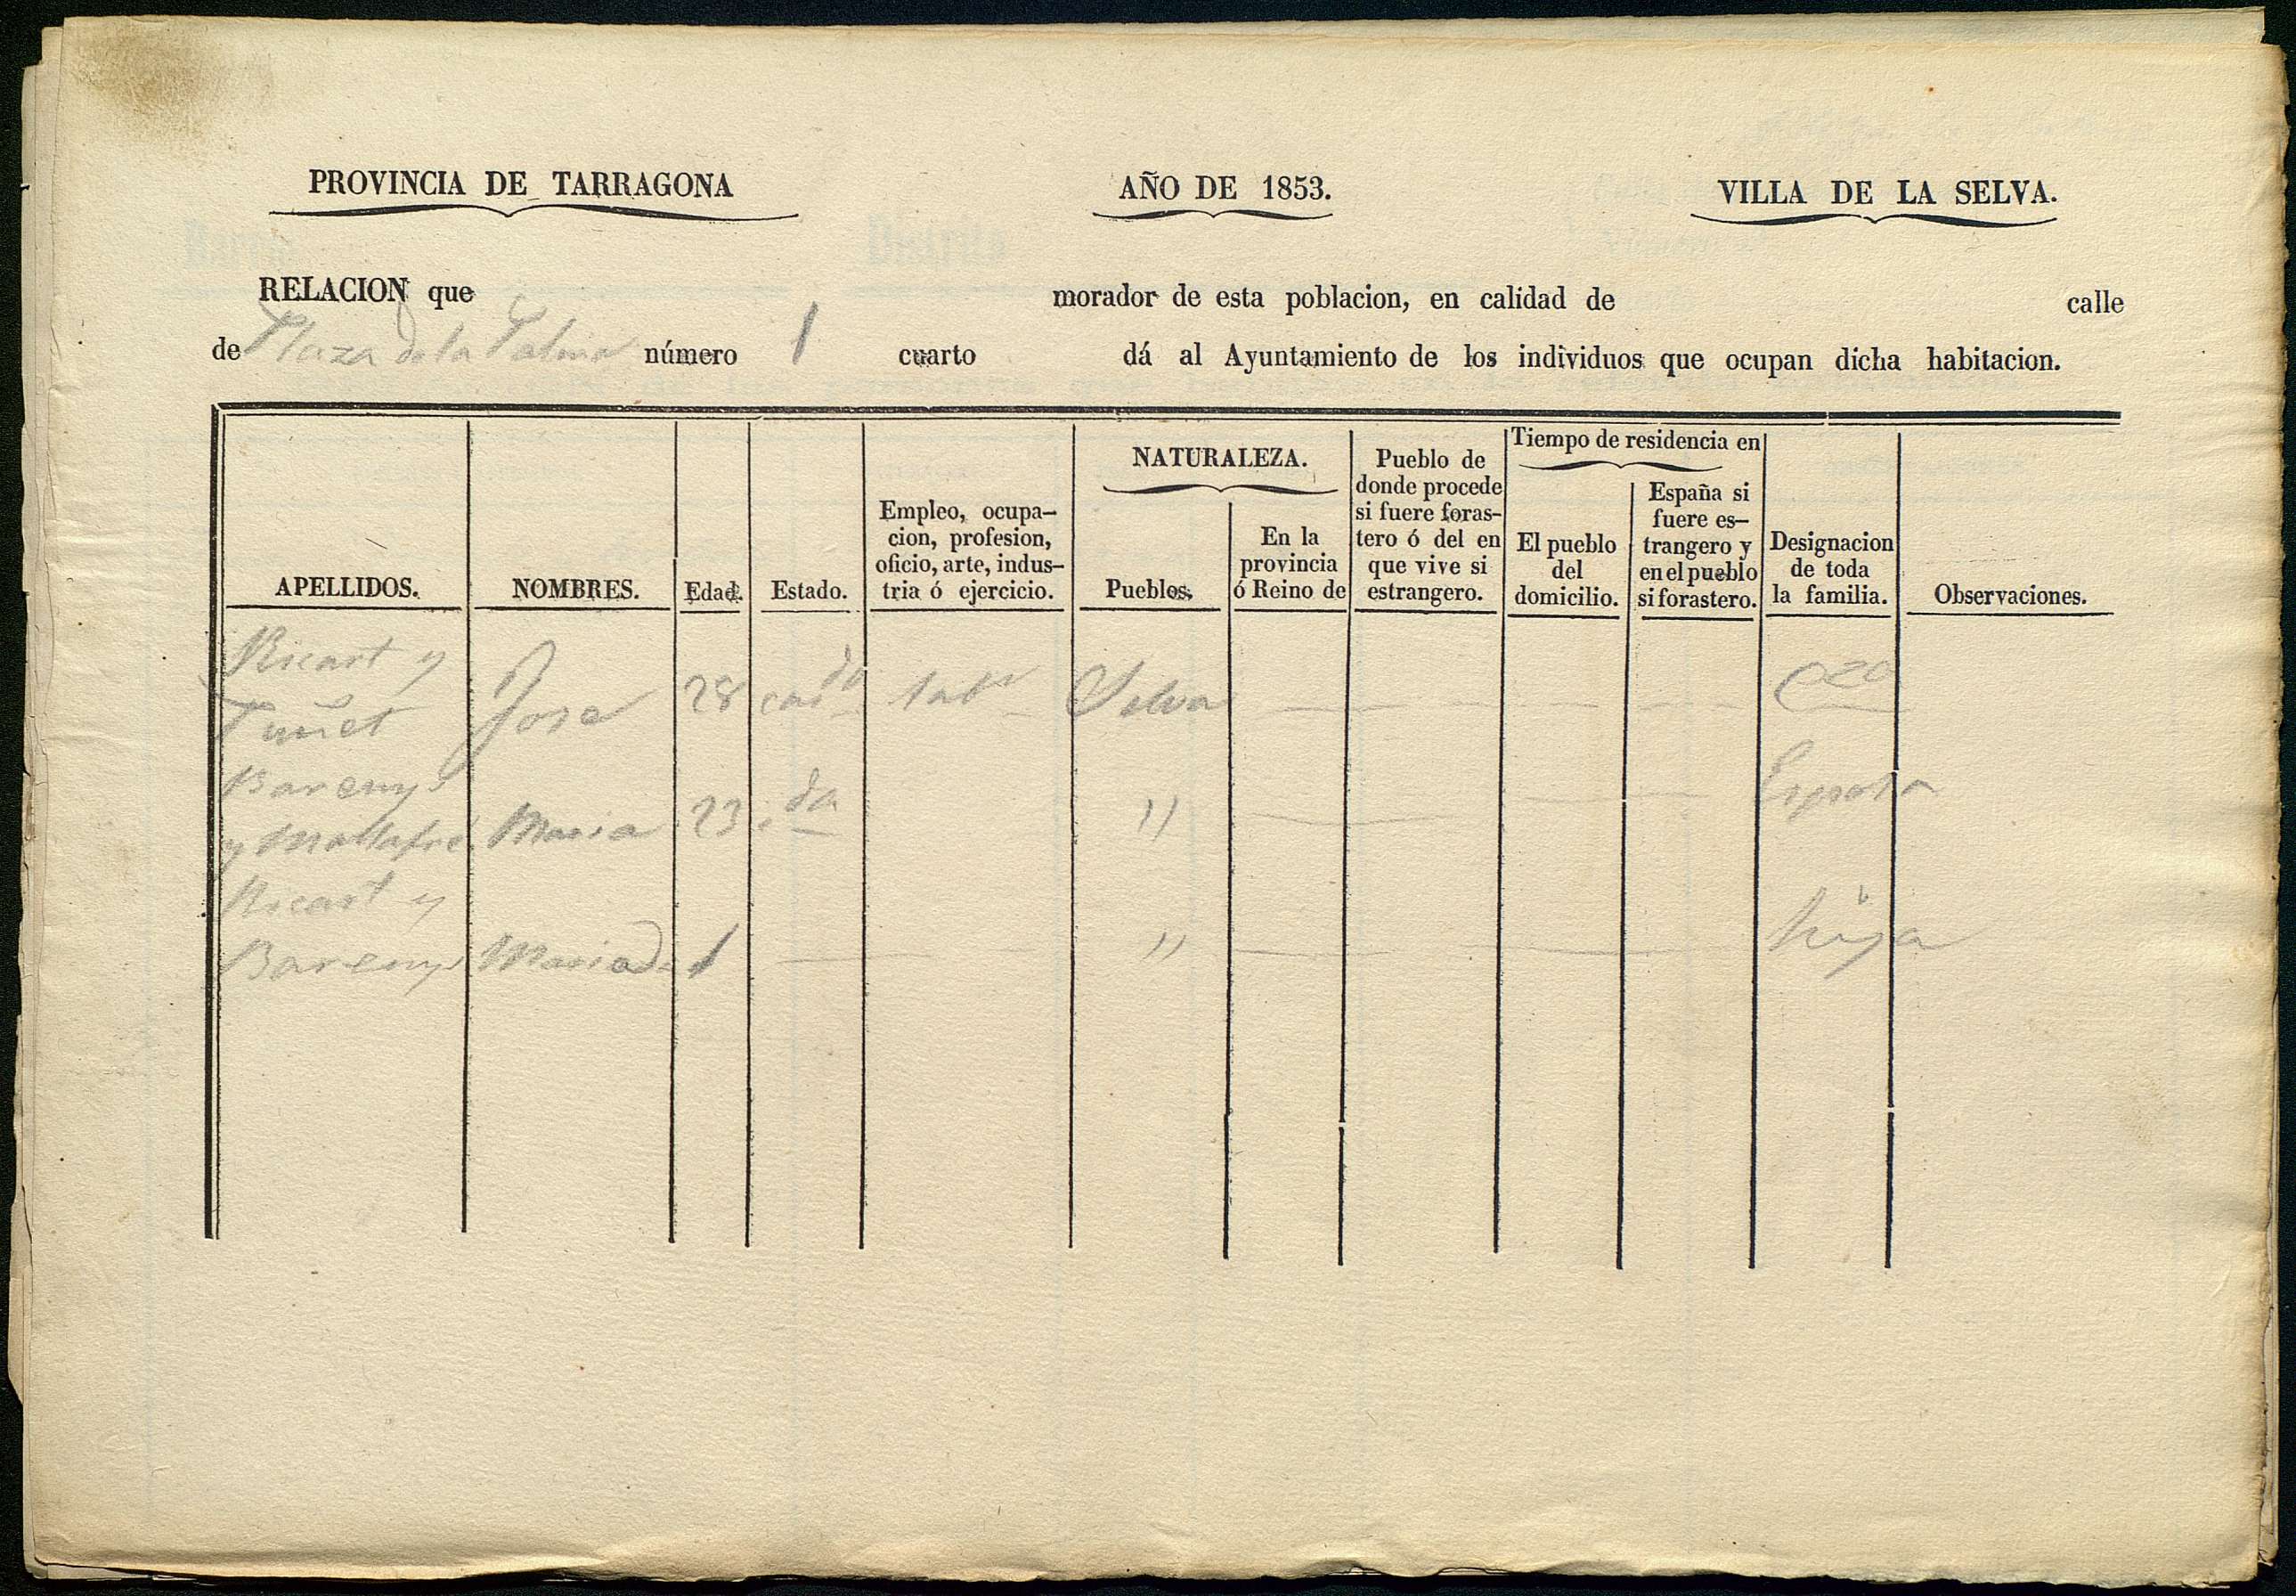 PROVINCIA DE TARRAGONA AÑO DE 1853. VILLA DE LA SELVA.
RELACION que morador de esta poblacion, en calidad de calle
de Plaza de la Palma número 1 cuarto dá al Ayuntamiento de los individuos que ocupan dicha habitacion.
APELLIDOS. NOMBRES. Edad. Estado. Empleo, ocupa-
cion, profesion,
oficio, arte, indus-
tria ó ejercicio.
NATURALEZA.
Pueblos.
En la
provincia
ó Reino de
Pueblo de
donde procede
si fuere foras-
tero ó del en
que vive si
estrangero.
Tiempo de residencia en
El pueblo
del
domicilio.
España si
fuere es-
trangero y
en el pueblo
si forastero.
Designacion
de toda
la familia.
Observaciones.
Ricart y
Puñet Jose 28 casdo labr Selva
Barenys
y Mallafré Maria 23 " da " Esposa
Ricart y
Barenys Maria 1 " hija